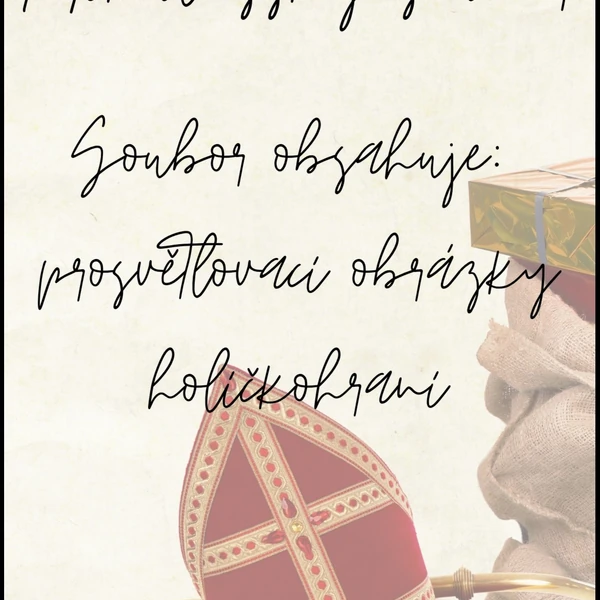 Soubor obsahuje:
prosvětlovací obrázky
holičkohraní